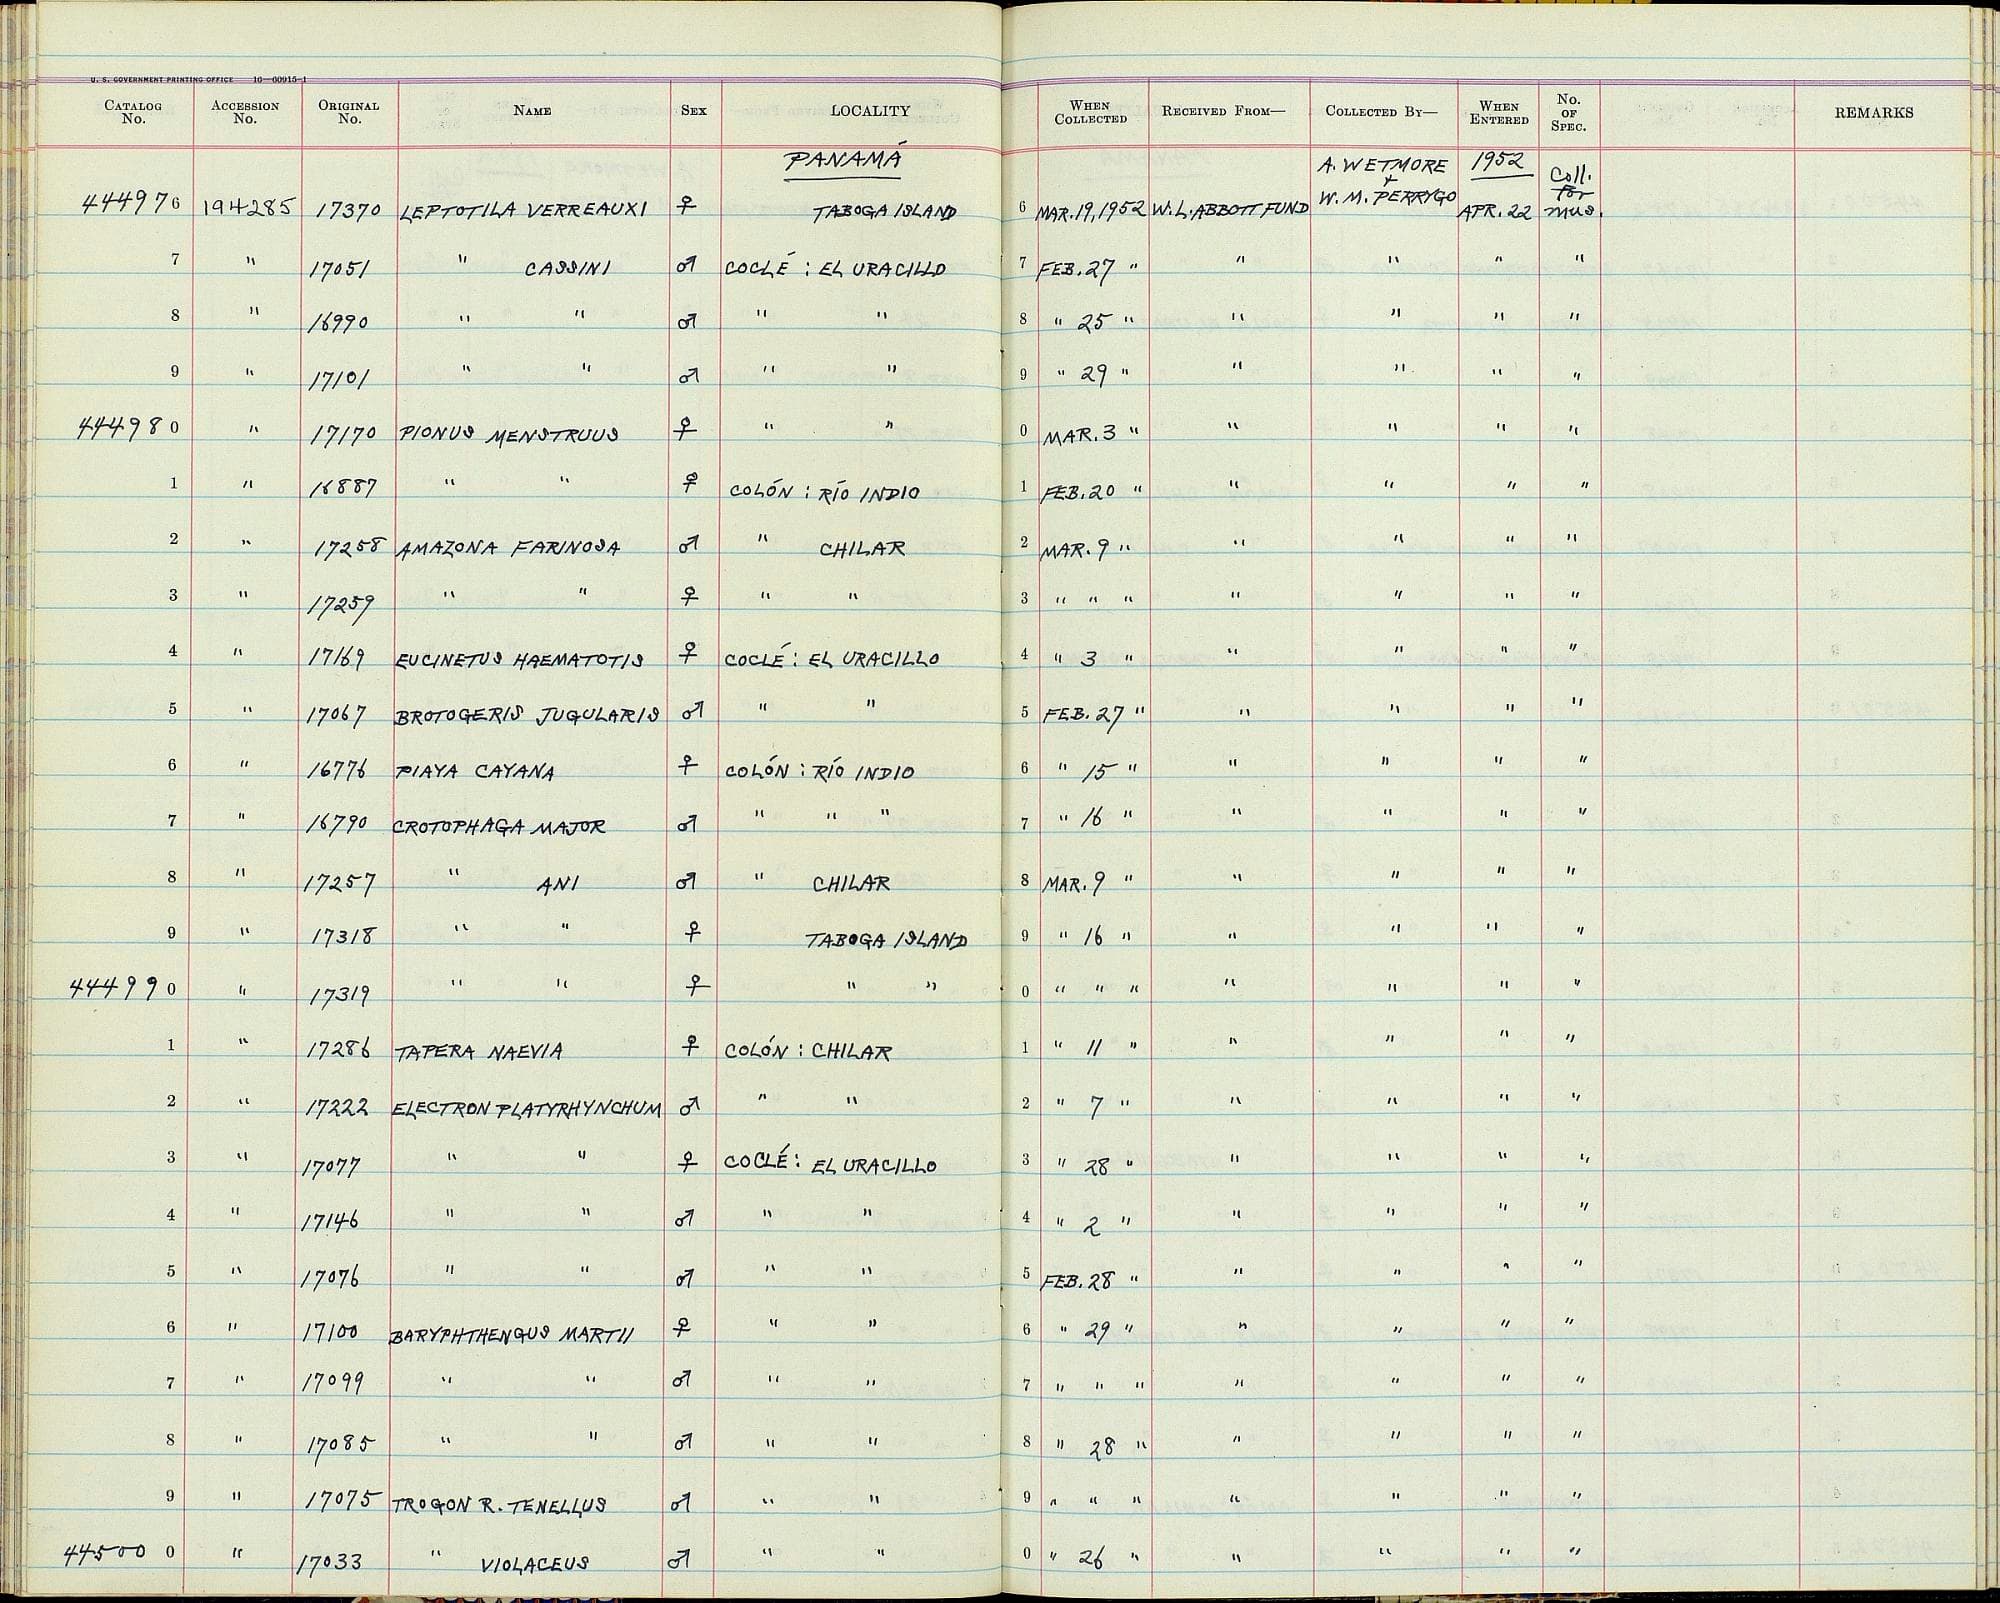 U. S. GOVERNMENT PRINTING OFFICE 16—60915-1
CATALOG No. ACCESSION No. ORIGINAL No. NAME SEX LOCALITY WHEN COLLECTED RECEIVED FROM— COLLECTED BY— WHEN ENTERED No. OF SPEC. REMARKS
PANAMÁ A. WETMORE + 1952
444976 194285 17370 LEPTOTILA VERREAUXI ♀ TABOGA ISLAND 6 MAR. 19, 1952 W. L. ABBOTT FUND W. M. PERRYGO APR. 22 Coll. for mus.
7 " 17051 " CASSINI ♂ COCLÉ : EL URACILLO 7 FEB. 27 " " " " "
8 " 16990 " " ♂ " " 8 " 25 " " " " "
9 " 17101 " " ♂ " " 9 " 29 " " " " "
444980 " 17170 PIONUS MENSTRUUS ♀ " " 0 MAR. 3 " " " " "
1 " 16887 " " ♀ COLÓN : RÍO INDIO 1 FEB. 20 " " " " "
2 " 17258 AMAZONA FARINOSA ♂ " CHILAR 2 MAR. 9 " " " " "
3 " 17259 " " ♀ " " 3 " " " " " " "
4 " 17169 EUCINETUS HAEMATOTIS ♀ COCLÉ : EL URACILLO 4 " 3 " " " " "
5 " 17067 BROTOGERIS JUGULARIS ♂ " " 5 FEB. 27 " " " " "
6 " 16776 PIAYA CAYANA ♀ COLÓN : RÍO INDIO 6 " 15 " " " " "
7 " 16790 CROTOPHAGA MAJOR ♂ " " " 7 " 16 " " " " "
8 " 17257 " ANI ♂ " CHILAR 8 MAR. 9 " " " " "
9 " 17318 " " ♀ TABOGA ISLAND 9 " 16 " " " " "
444990 " 17319 " " ♀ " " 0 " " " " " " "
1 " 17286 TAPERA NAEVIA ♀ COLÓN : CHILAR 1 " 11 " " " " "
2 " 17222 ELECTRON PLATYRHYNCHUM ♂ " " 2 " 7 " " " " "
3 " 17077 " " ♀ COCLÉ : EL URACILLO 3 " 28 " " " " "
4 " 17146 " " ♂ " " 4 " 2 " " " " "
5 " 17076 " " ♂ " " 5 FEB. 28 " " " " "
6 " 17100 BARYPHTHENGUS MARTII ♀ " " 6 " 29 " " " " "
7 " 17099 " " ♂ " " 7 " " " " " " "
8 " 17085 " " ♂ " " 8 " 28 " " " " "
9 " 17075 TROGON R. TENELLUS ♂ " " 9 " " " " " " "
44500 0 " 17033 " VIOLACEUS ♂ " " 0 " 26 " " " " "